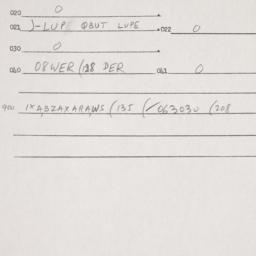 020 0
021 )-LUPE QBUT LUPE .022 0
030 0
060 08WER (128 DER 061 0
900 1XABZAXARAWS (135 (/063030 (208